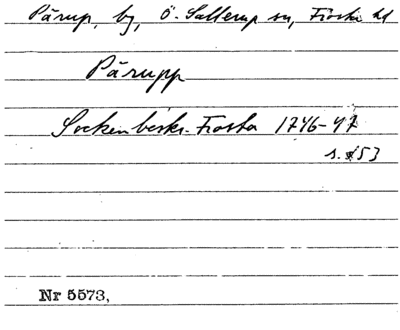 Pärup, by, Ö. Sallerup sn, Frosta hd
Pärupp
Sockenbeskr. Frosta 1746-47
s. 53
Nr 5573,